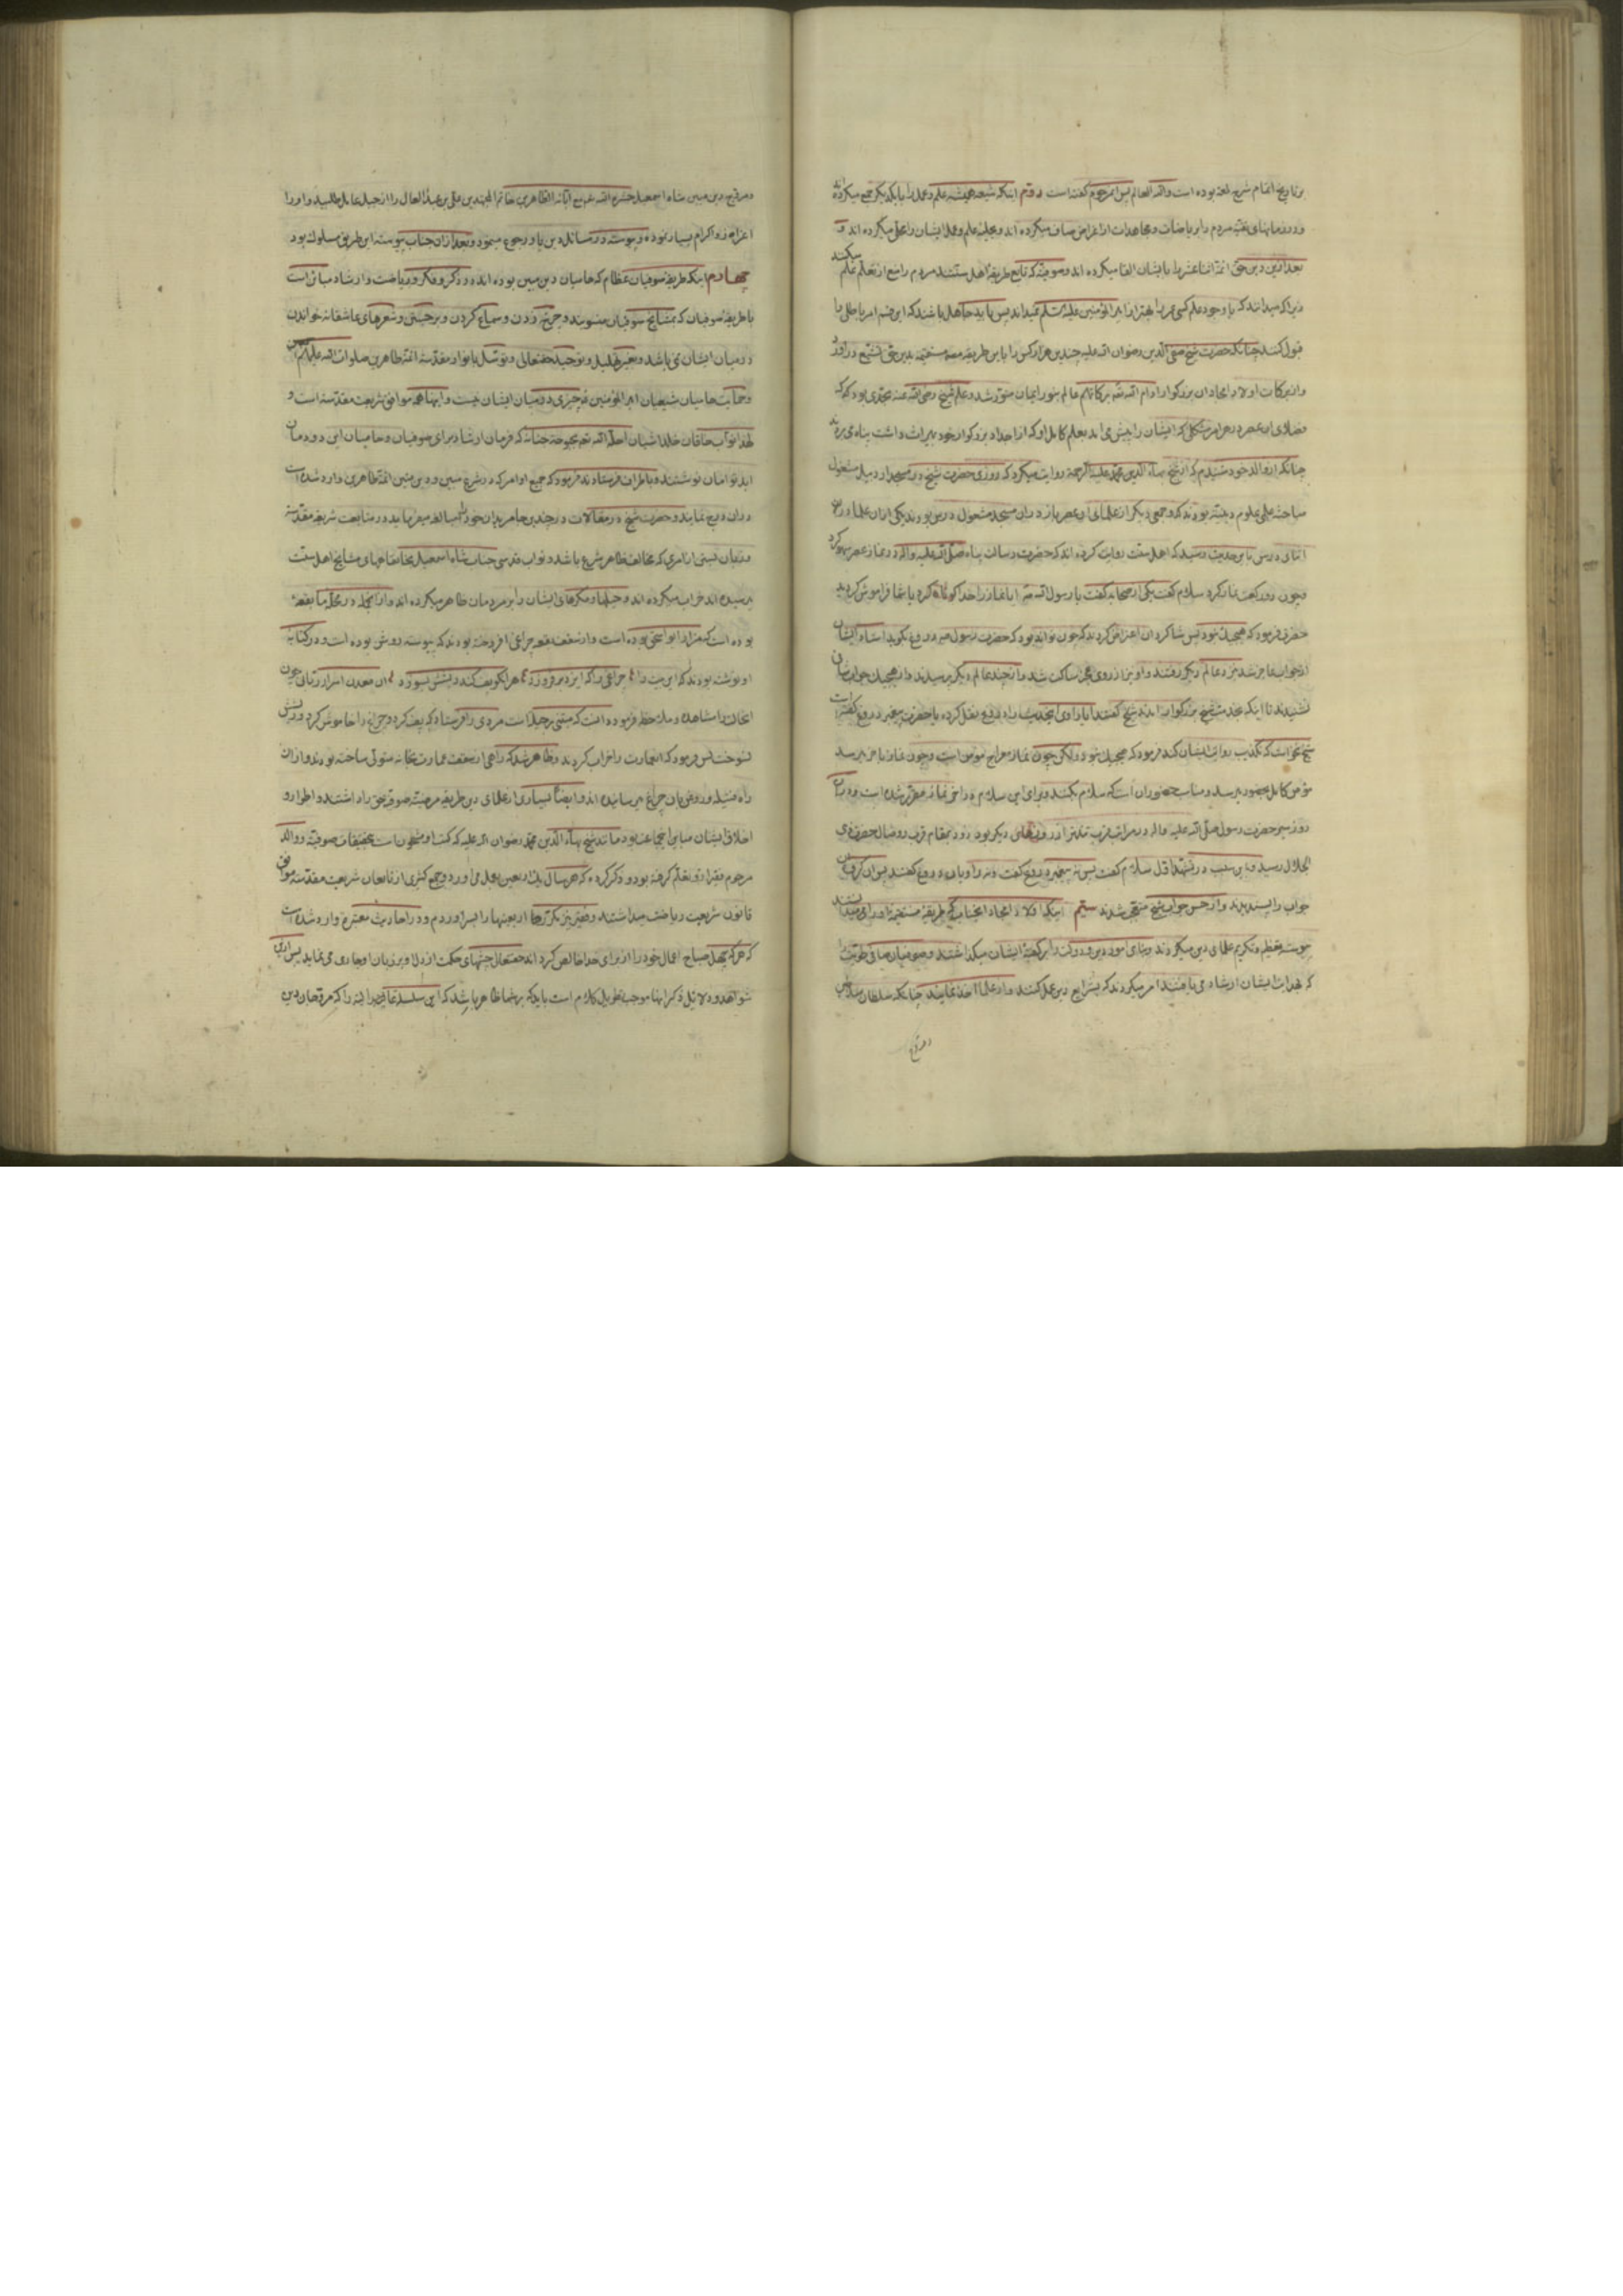 بر تاریخ اتمام شرح لمعه بوده است والله العالم پس آنمرحوم گفته است دوم اینکه شیعه همیشه علم و عمل را با یکدیگر جمع میکرده‌اند
و در زمانهای تقیه مردم را بریاضات و مجاهدات از اغراض صاف میکرده اند و بحلیه علم و عمل ایشان را محلی میکرده اند و
بعد ازین دین حق ائمه اثنا عشر را بایشان القا میکرده اند و صوفیه که تابع طریقه اهل سنتند مردم را منع از تعلم علم میکنند
زیرا که میدانند که با وجود علم کسی عمر را بهتر از امیرالمؤمنین علیه السلم نمیداند پس باید جاهل باشند که این قسم امر باطلی را
قبول کنند چنانکه حضرت شیخ صفی الدین رضوان الله علیه چندین هزار کس را باین طریقه مستقیمه بدین حق تشیع در آورد
و از برکات اولاد امجاد آن بزرگوار ادام الله برکاتهم عالم بنور ایمان منور شد و علم شیخ رضی الله عنه بحدی بود که
فضلای آن عصر در هر امر مشکلی که ایشان را پیش می آمد بعلم کامل او که از اجداد بزرگوار خود بمیراث داشت پناه می بردند
چنانکه از والد خود شنیدم که از شیخ بهاء الدین محمد علیه الرحمة روایت میکرد که روزی حضرت شیخ در مسجد اردبیل مشغول
مباحثه علوم دینیه بودند که و جمعی دیگر از علمای آن عصر باز در آن مسجد مشغول درس بودند یکی از آن علما در
اثنای درس باین حدیث رسید که اهل سنت روایت کرده اند که حضرت رسالت پناه صلی الله علیه واله در نماز عصر سهو کرد
و چون دو رکعت نماز کرد سلام گفت یکی از صحابه گفت یا رسول الله آیا نماز را خدا کوتاه کرد یا شما فراموش کردید
حضرت فرمود که هیچیک نبود پس شاگردان اعتراض کردند که چون تواند بود که حضرت رسول دروغ گوید استاد ایشان
از جواب عاجز شد نزد عالم دیگر رفتند و او نیز از روی عجز ساکت شد و از چند عالم دیگر پرسیدند و از هیچیک جواب شافی
نشنیدند تا اینکه بخدمت شیخ بزرگوار آمدند شیخ گفتند آیا راوی اینحدیث را دروغ نقل کرده یا حضرت پیغمبر دروغ گفته است
شیخ نخواست که تکذیب روایت ایشان کند فرمود که هیچیک نبود ولیکن چون نماز معراج مؤمن است و چون نماز باخر میرسد
مؤمن کامل بحضور میرسد و مناسب حضور آن است که سلام بکند و برای این سلام در آخر نماز مقرر شده است و در آن
روز سیر حضرت رسول صلی الله علیه واله در مراتب قرب تندتر از روزهای دیگر بود زود بمقام قرب و وصال حضرت ذی
الجلال رسید و باین سبب در تشهد اول سلام گفت پس نه پیغمبر دروغ گفت و نه راویان دروغ گفتند پس آن گروه
جواب را پسندیدند و از حسن جواب شیخ متعجب شدند سیم اینکه اولاد امجاد آنجناب که طریقه مستقیمه او را می
پیوسته تعظیم و تکریم علمای دین میکردند و بنای امور دین و دولت را بر گفته ایشان میگذاشتند و صوفیان صافی طویت را
که بخدمت ایشان ارشاد می یافتند امر میکردند که بشرایع دین عمل کنند و از علما اخذ نمایند چنانکه سلطان سلاطین
و مروج
و مروج دین مبین شاه اسمعیل حشره الله مع آبائه الطاهرین خاتم المجتهدین علی بن عبد العال را از جبل عامل طلبید و او را
اعزاز و اکرام بسیار نموده و پیوسته در مسائل دین باو رجوع مینمود و بعد از آن جناب پیوسته این طریق مسلوک بود
چهارم اینکه طریقه صوفیان عظام که حامیان دین مبین بوده اند در ذکر و فکر و ریاضت و ارشاد مباین است
با طریقه صوفیان که بمشایخ صوفیان منسوبند و چرخ زدن و سماع کردن و برجستن و شعرهای عاشقانه خواندن
در میان ایشان نمی باشد و بغیر تهلیل و توحید حقتعالی و توسل بانوار مقدسه ائمه طاهرین صلوات الله علیهم
و حمایت حامیان شیعیان امیرالمؤمنین چیزی در میان ایشان نیست و اینها همه موافق شریعت مقدسه است و
لهذا نواب خاقان خلد آشیان احله الله بحبوحة جنانه که فرمان ارشاد برای صوفیان و حامیان این دودمان
ابد توامان نوشتند و باطراف فرستادند فرمود که جمیع اوامر که در شرع مبین و دین متین ائمه طاهرین وارد شده است
در آن درج نمایند و حضرت شیخ در مقالات در چندین جا مریدان خود را مبالغه میفرماید در متابعت شریعت مقدسه
و زبان بستن از امری که مخالف ظاهر شرع باشد و نواب قدسی جناب شاه اسمعیل بخانقاههای مشایخ اهل سنت
میرسیده اند خراب میکرده اند و حیلها و مکرهای ایشان را بر مردمان ظاهر میکرده اند و از آنجمله در محله ما بقعه
بوده است که مزار ابو اسحق بوده است و از سقف بقعه چراغی افروخته بودند که پیوسته روشن بوده است و در کتابه
او نوشته بودند که این بیت را چراغی را که ایزد برفروزد هر آنکو پف کند ریشش بسوزد آن معدن اسرار ربانی چون
آنحال را مشاهده و ملاحظه فرموده است که مبتنی بر حیله است مردی را فرستاد که پف کرد و چراغ را خاموش کرد و ریشش
نسوخت پس فرمود که آنعمارت را خراب کردند و ظاهر شد که راهی از سقف عمارت بخانه متولی ساخته بودند و از آن
راه فتیله و روغن بآن چراغ میرسانیده اند و ایضا بسیاری از علمای دین طریقه مرضیه صوفیه حق را داشتند و اطوار و
اخلاق ایشان مباین آنجماعت بود مانند شیخ بهاء الدین محمد رضوان الله علیه که کتب او مشحون است بتحقیقات صوفیه و والد
مرحوم فقیر از او تعلیم گرفته بود و ذکر کرده که هر سال یک اربعین بعمل می آورد و جمع کثیری از تابعان شریعت مقدسه موافق
قانون شریعت ریاضت میداشتند و فقیر نیز مکرر اربعینها را بسر آوردم و در احادیث معتبره وارد شده است
که هر که چهل صباح اعمال خود را از برای خدا خالص گرداند حقتعالی چشمهای حکمت از دل او بر زبان او جاری می نماید پس
شواهد و دلائل ذکر اینها موجب تطویل کلام است باید که بر شما ظاهر باشد که این سلسله را که مروجان دین